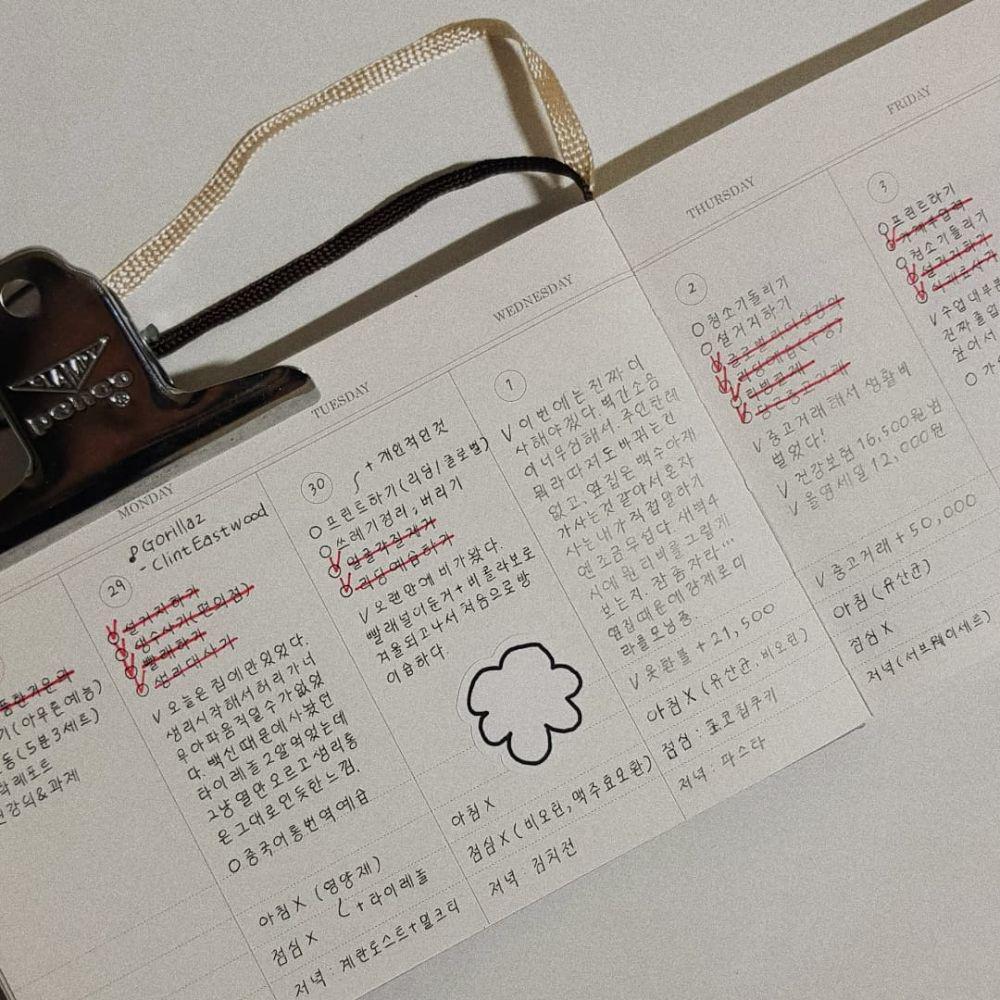 penco®
MONDAY
Gorillaz
- Clint Eastwood
29
설거지하기
생수사기(편의점)
빨래하기
생리대사기
V 오늘은 집에만 있었다.
생리시작해서 허리가 너
무 아파 움직일 수가 없었
다. 백신 때문에 사놨던
타이레놀 2알 먹었는데
그냥 열만 오르고 생리통
은 그대로인듯한 느낌.
O 중국어통번역예습
아침 X (영양제)
+ 타이레놀
점심 X
저녁 : 계란토스트+밀크티
기(아무튼예능)
동(5분3세트)
학레포트
강의&과제
TUESDAY
30
+ 개인적인것
O 프린트하기(리덤/글로벌)
O 쓰레기정리, 버리기
V 오랜만에 비가왔다.
빨래널이둔거+비몰라보로
겨울되고나서 처음으로 방
이 습하다.
아침 X
점심 X (비오틴, 맥주효모환)
저녁 : 김치전
WEDNESDAY
1
V 이번에는 진짜 이
사해야겠다. 벽간소음
이 너무 심해서. 주인한테
뭐라 따져도 바뀌는건
없고, 옆집은 백수아재
가 사는것 같아서 혼자
사는 내가 직접 말하기
엔 조금 무섭다. 새벽 4
시에 원 티비를 그렇게
보는지. 잠 좀 자라...
옆집 때문에 강제로 미
라클모닝 중.
V 옷환불 + 21,500
아침 X (유산균, 비오틴)
점심 : 초코칩쿠키
저녁 : 파스타
THURSDAY
2
O 청소기돌리기
O 설거지하기
중고중고거래
V 중고거래 해서 생활비
벌었다!
V 건강보험 16,500원 범
V 올영세일 12,000원
V 중고거래 + 50,000
아침 (유산균)
점심 X
저녁 (서브웨이세트)
FRIDAY
3
O 프린트하기
O 청소기돌리기
설거지하기
V 수업 내부분
진짜 졸업
싶어서